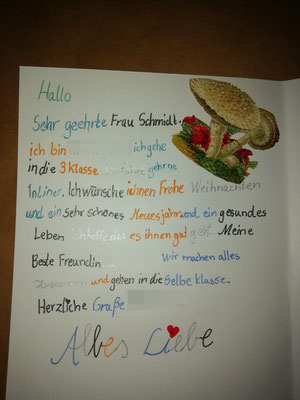 Hallo
Sehr geehrte Frau Schmidt.
ich bin ichgehe
in die 3 Klasse ich fahre gehrne
Inliner. Ich wünsche ihnen Frohe Weihnachten
und ein sehr schönes Neuesjahr und ein gesundes
Leben ich hoffe das es ihnen gut geht. Meine
Beste Freundin wir machen alles
Zusammen und gehen in die Selbe Klasse.
Herzliche Grüße
Alles Liebe